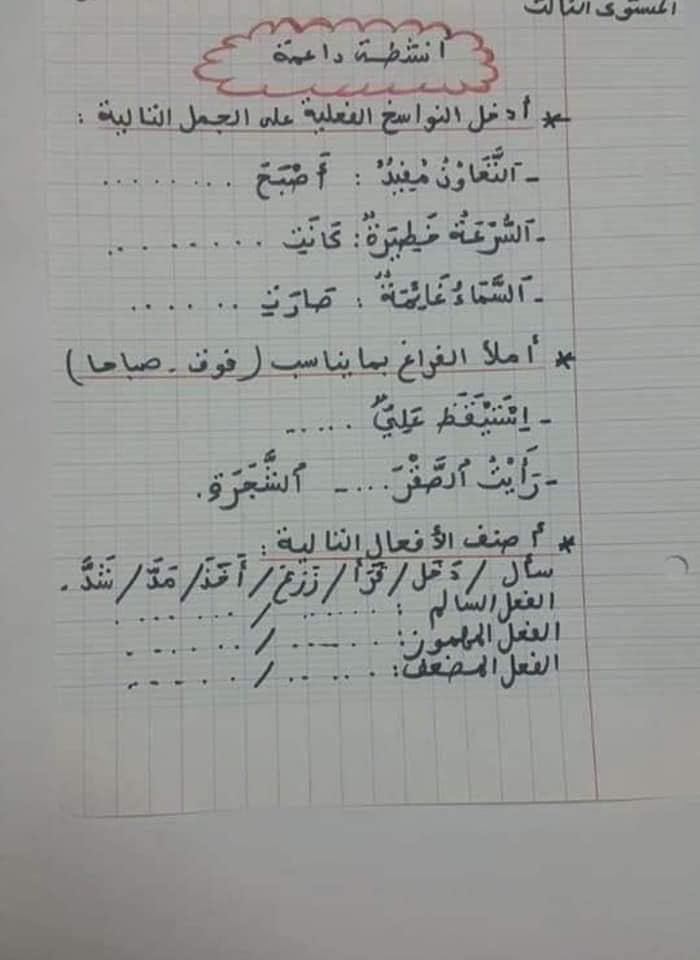 المستوى الثالث
أنشطة داعمة
* أدخل النواسخ الفعلية على الجمل التالية :
- اَلتَّعَاوُنُ مُفِيدٌ : أَصْبَحَ ........
- اَلسُّرْعَةُ خَطِيرَةٌ : كَانَتِ ........
- اَلسَّمَاءُ غَائِمَةٌ : صَارَتِ ......
* أملأ الفراغ بما يناسب ( فوق - صباحا )
- اِسْتَيْقَظَ عَلِيٌّ .....
- رَأَيْتُ اَلصَّقْرَ .... اَلشَّجَرَةِ.
* أصنف الأفعال التالية :
سأل / دَخَلَ / قَرَأَ / زَرَعَ / أَخَذَ / مَدَّ / شَدَّ .
الفعل السالم : ...... / ......
الفعل المهموز : ...... / ......
الفعل المضعف : ...... / ......